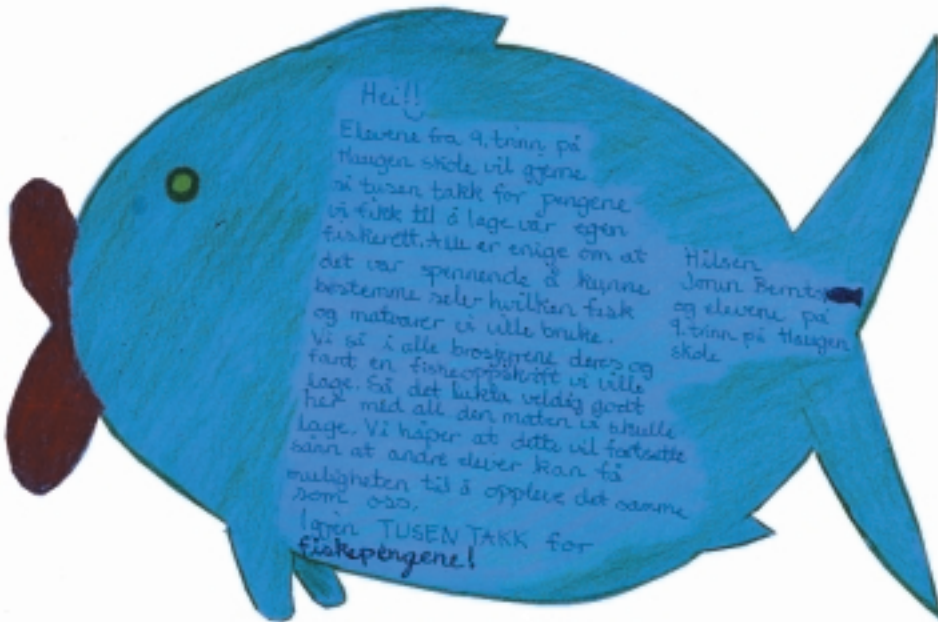 Hei!!
Elevene fra 9. trinn på
Haugen skole vil gjerne
si tusen takk for pengene
vi fikk til å lage vår egen
fiskerett. Alle er enige om at
det var spennende å kunne
bestemme selv hvilken fisk
og matvarer vi ville bruke.
Vi så i alle brosjyrene deres og
fant en fiskeoppskrift vi ville
lage. Så det lukta veldig godt
her med all den maten vi skulle
lage. Vi håper at dette vil fortsette
sånn at andre elever kan få
muligheten til å oppleve det samme
som oss.
Igjen TUSEN TAKK for
fiskepengene!
Hilsen
Jorun
og elevene på
9. trinn på Haugen
skole